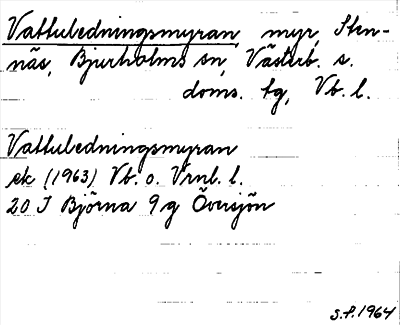 Vattuledningsmyran, myr, Sten-
näs, Bjurholms sn, Västerb. s.
doms. tg, Vb. l.
Vattuledningsmyran
ek (1963) Vb. o. Vrnl. l.
20 J Björna 9 g Översjön
S.P. 1964